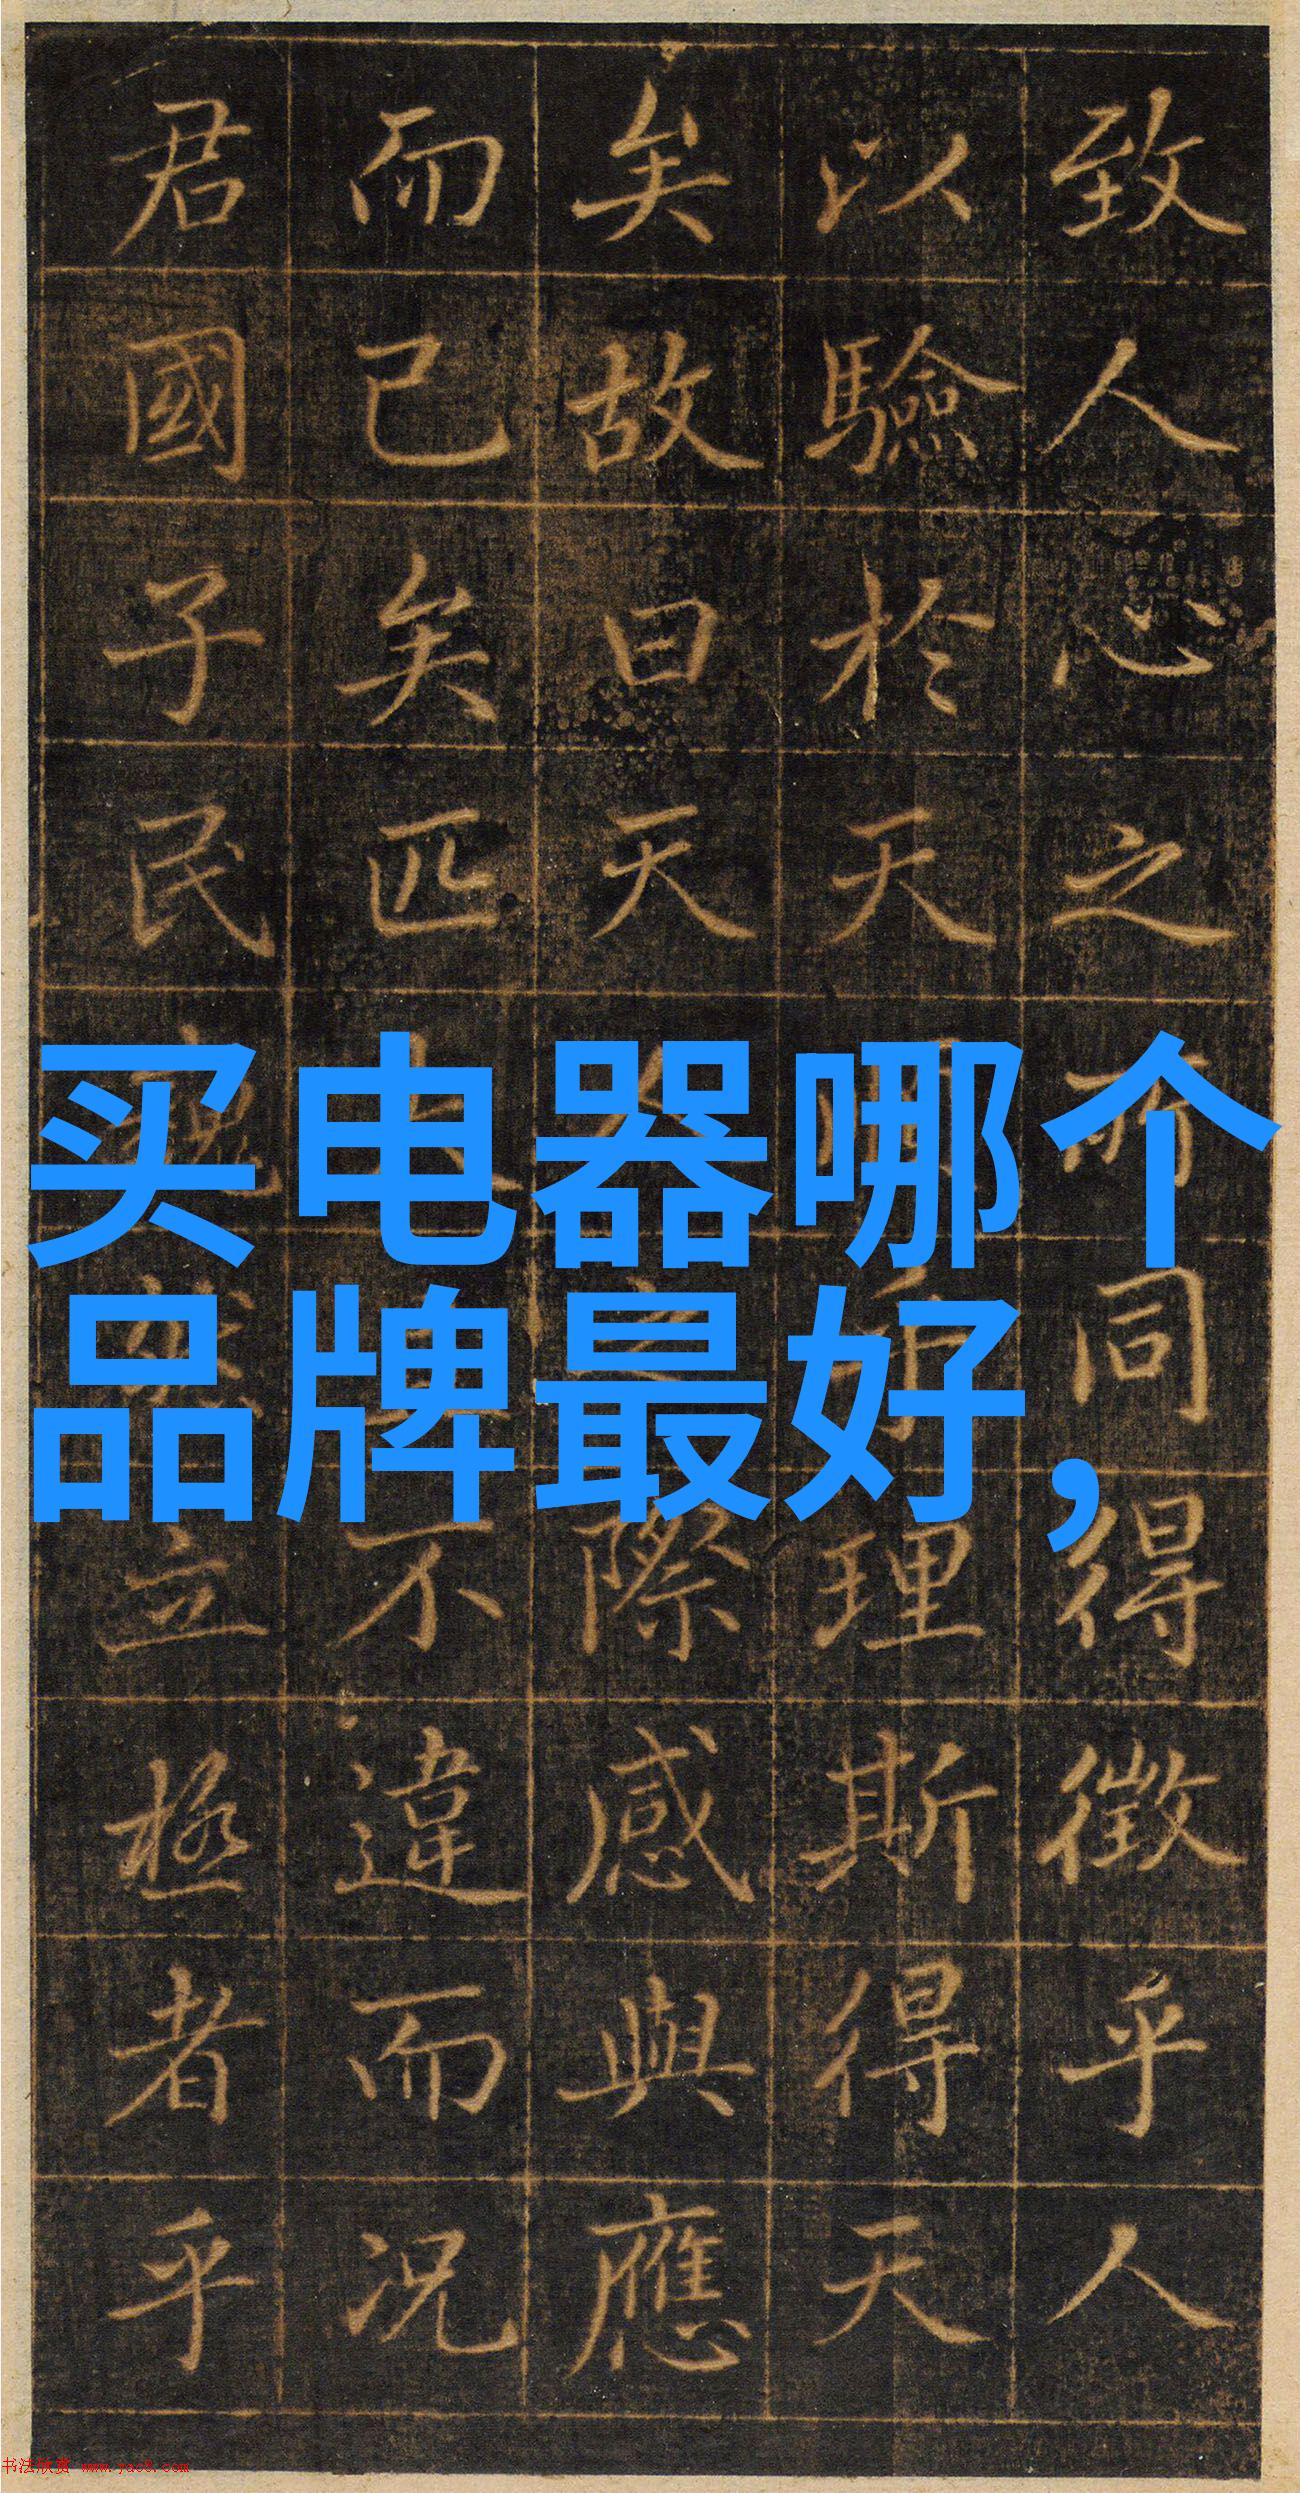 致人心之所同得徵乎人
以驗於天理斯得天
矣故曰天人之際感與應
而已矣匹不違而況
君國子民立極者乎
买电器哪个
品牌最好，
书法欣赏 www.yac8.com